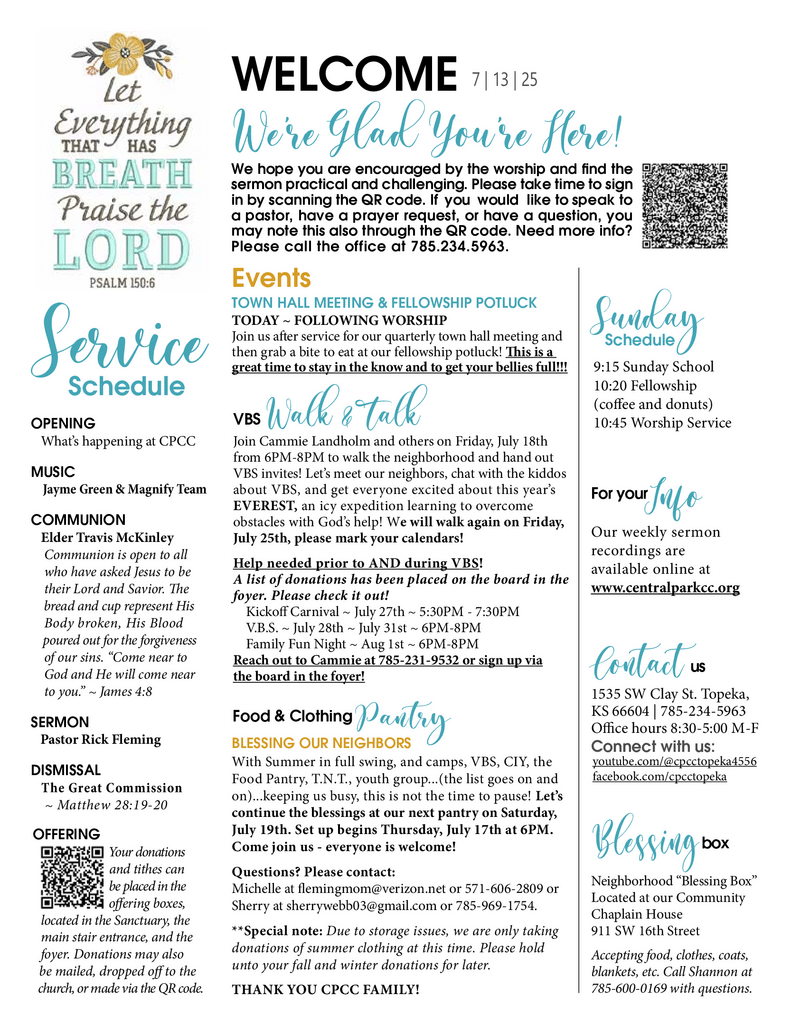 Let
Everything
THAT HAS
BREATH
Praise the
LORD
PSALM 150:6
WELCOME 7 | 13 | 25
We're Glad You're Here!
We hope you are encouraged by the worship and find the
sermon practical and challenging. Please take time to sign
in by scanning the QR code. If you would like to speak to
a pastor, have a prayer request, or have a question, you
may note this also through the QR code. Need more info?
Please call the office at 785.234.5963.
Service
Schedule
OPENING
What's happening at CPCC
MUSIC
Jayme Green & Magnify Team
COMMUNION
Elder Travis McKinley
Communion is open to all
who have asked Jesus to be
their Lord and Savior. The
bread and cup represent His
Body broken, His Blood
poured out for the forgiveness
of our sins. "Come near to
God and He will come near
to you." ~ James 4:8
SERMON
Pastor Rick Fleming
DISMISSAL
The Great Commission
~ Matthew 28:19-20
OFFERING
Your donations
and tithes can
be placed in the
offering boxes,
located in the Sanctuary, the
main stair entrance, and the
foyer. Donations may also
be mailed, dropped off to the
church, or made via the QR code.
Events
TOWN HALL MEETING & FELLOWSHIP POTLUCK
TODAY ~ FOLLOWING WORSHIP
Join us after service for our quarterly town hall meeting and
then grab a bite to eat at our fellowship potluck! This is a
great time to stay in the know and to get your bellies full!!!
VBS Walk & Talk
Join Cammie Landholm and others on Friday, July 18th
from 6PM-8PM to walk the neighborhood and hand out
VBS invites! Let's meet our neighbors, chat with the kiddos
about VBS, and get everyone excited about this year's
EVEREST, an icy expedition learning to overcome
obstacles with God's help! We will walk again on Friday,
July 25th, please mark your calendars!
Help needed prior to AND during VBS!
A list of donations has been placed on the board in the
foyer. Please check it out!
Kickoff Carnival ~ July 27th ~ 5:30PM - 7:30PM
V.B.S. ~ July 28th ~ July 31st ~ 6PM-8PM
Family Fun Night ~ Aug 1st ~ 6PM-8PM
Reach out to Cammie at 785-231-9532 or sign up via
the board in the foyer!
Food & Clothing Pantry
BLESSING OUR NEIGHBORS
With Summer in full swing, and camps, VBS, CIY, the
Food Pantry, T.N.T., youth group...(the list goes on and
on)...keeping us busy, this is not the time to pause! Let's
continue the blessings at our next pantry on Saturday,
July 19th. Set up begins Thursday, July 17th at 6PM.
Come join us - everyone is welcome!
Questions? Please contact:
Michelle at flemingmom@verizon.net or 571-606-2809 or
Sherry at sherrywebb03@gmail.com or 785-969-1754.
**Special note: Due to storage issues, we are only taking
donations of summer clothing at this time. Please hold
unto your fall and winter donations for later.
THANK YOU CPCC FAMILY!
Sunday
Schedule
9:15 Sunday School
10:20 Fellowship
(coffee and donuts)
10:45 Worship Service
For your Info
Our weekly sermon
recordings are
available online at
www.centralparkcc.org
Contact us
1535 SW Clay St. Topeka,
KS 66604 | 785-234-5963
Office hours 8:30-5:00 M-F
Connect with us:
youtube.com/@cpcctopeka4556
facebook.com/cpcctopeka
Blessing box
Neighborhood "Blessing Box"
Located at our Community
Chaplain House
911 SW 16th Street
Accepting food, clothes, coats,
blankets, etc. Call Shannon at
785-600-0169 with questions.